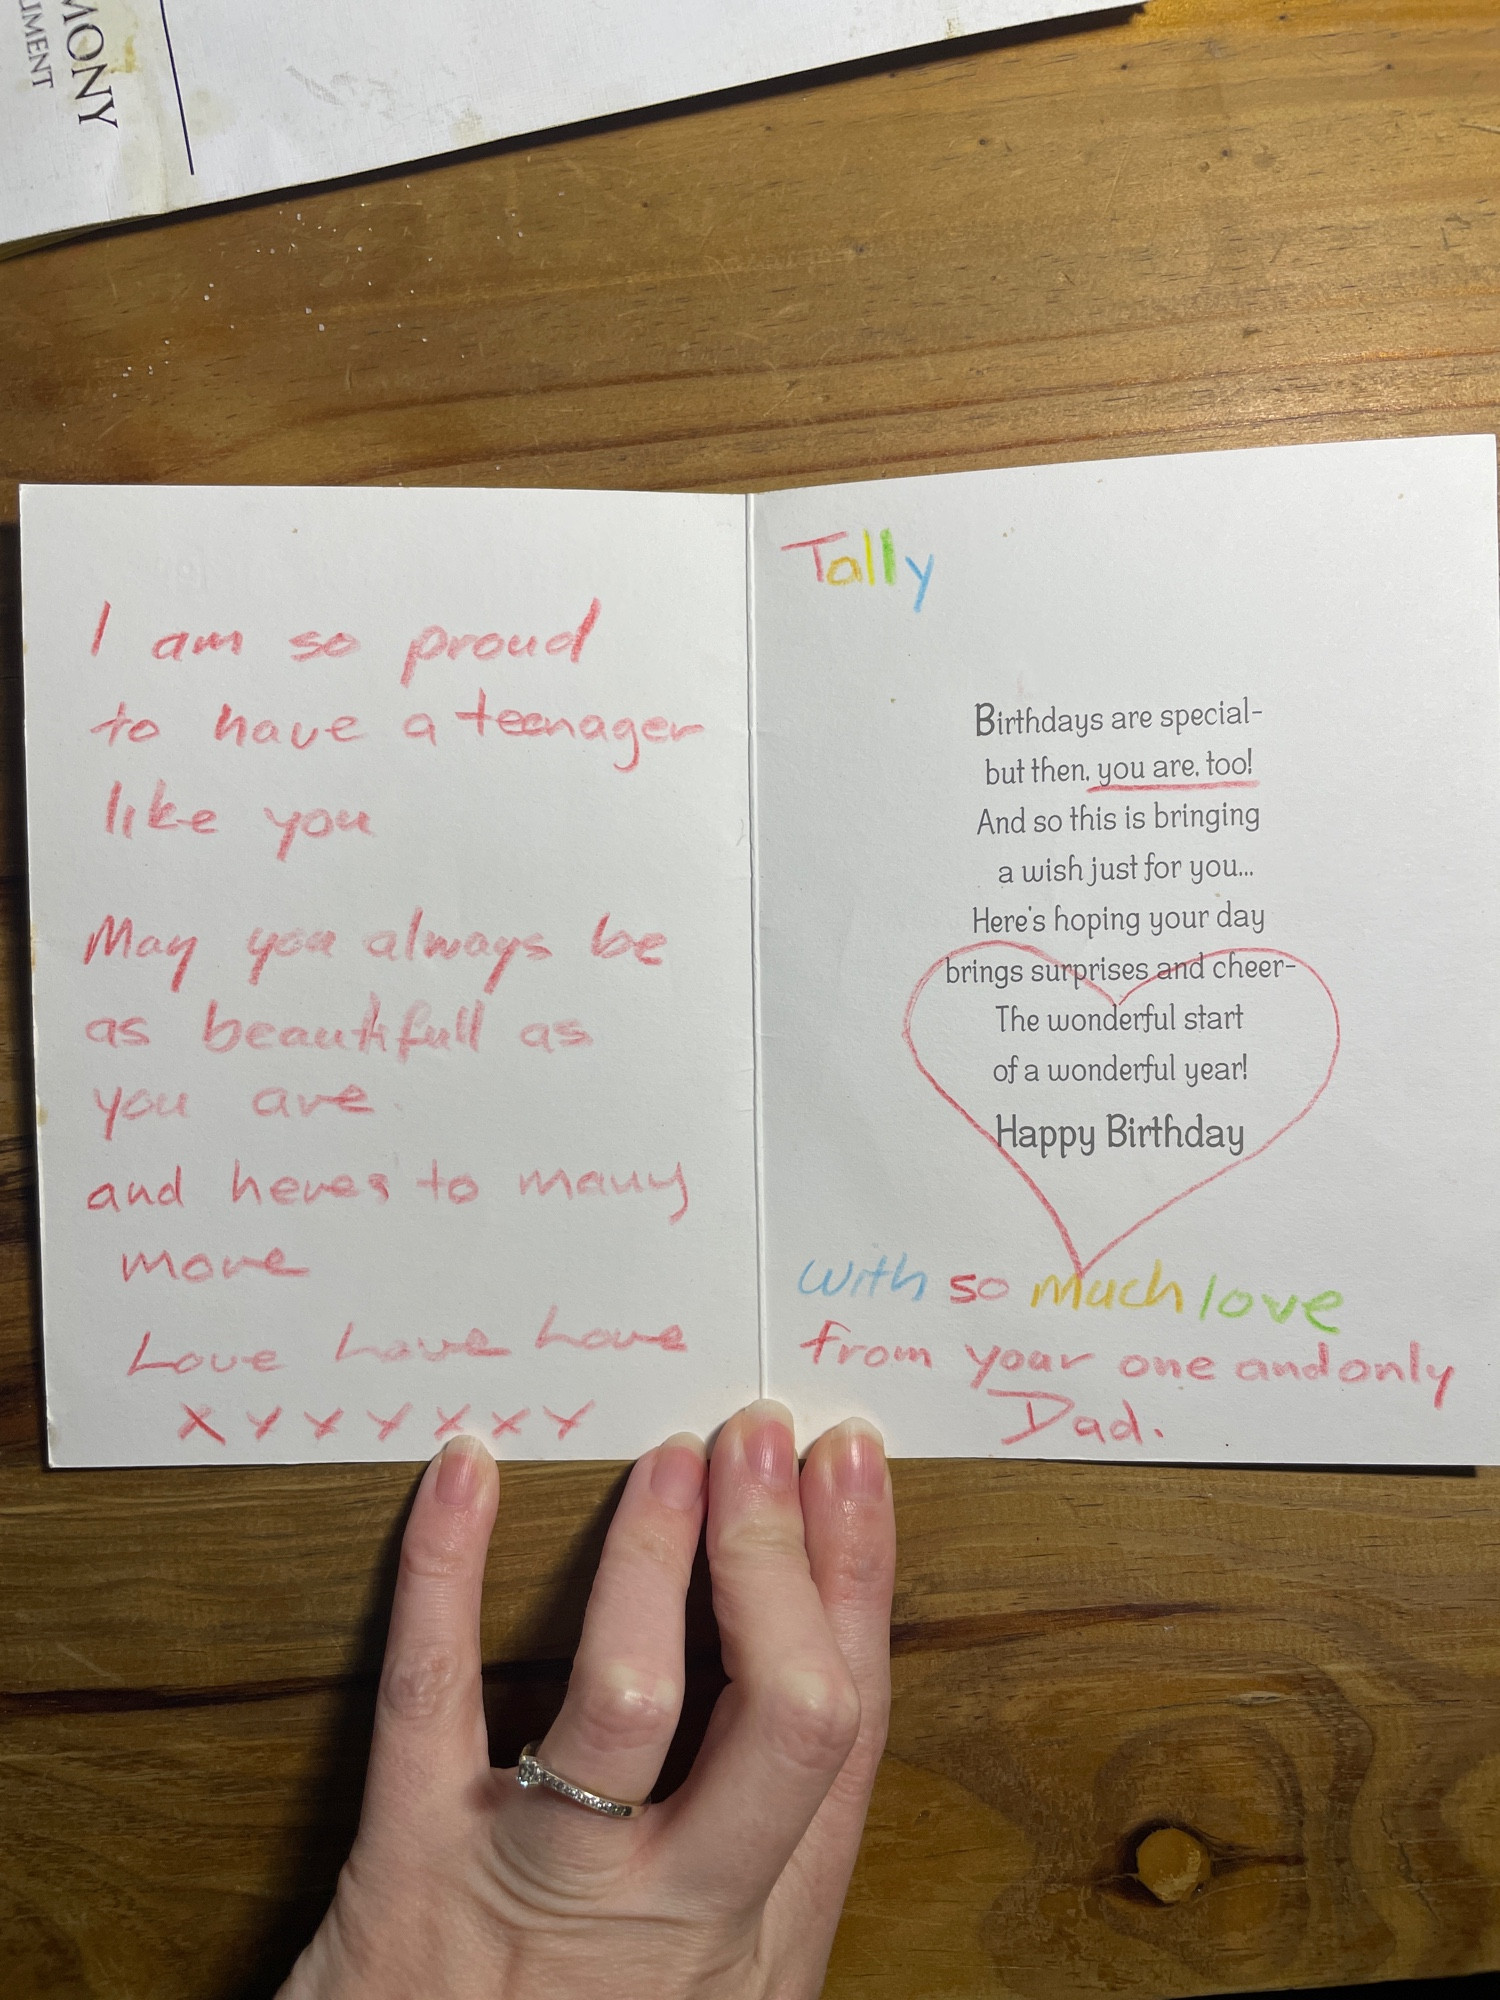 MONY
UMENT
I am so proud
to have a teenager
like you
May you always be
as beautifull as
you are.
and heres to many
more
Love Love Love
X X X X X X X
Tally
Birthdays are special-
but then, you are, too!
And so this is bringing
a wish just for you...
Here's hoping your day
brings surprises and cheer-
The wonderful start
of a wonderful year!
Happy Birthday
With so much love
from your one and only
Dad.